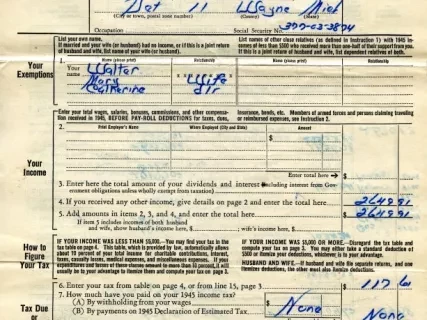 Det 11 Wayne Mich
(City or town, postal zone number) (County) (State)
Occupation Social Security No. 377-03-3874
Your Exemptions
List your own name.
If married and your wife (or husband) had no income, or if this is a joint return of husband and wife, list name of your wife (or husband).
List names of other close relatives (as defined in Instruction 1) with 1945 incomes of less than $500 who received more than one-half of their support from you. If this is a joint return of husband and wife, list dependent relatives of both.
1. Name (please print) Relationship Name (please print) Relationship
Your name Walter x x
Mary Wife
Catherine dtr
Enter your total wages, salaries, bonuses, commissions, and other compensation received in 1945, BEFORE PAY-ROLL DEDUCTIONS for taxes, dues, insurance, bonds, etc. Members of armed forces and persons claiming traveling or reimbursed expenses, see Instruction 2.
Your Income
2. Print Employer's Name Where Employed (City and State) Amount
$
Enter total here → $
3. Enter here the total amount of your dividends and interest (including interest from Government obligations unless wholly exempt from taxation)
4. If you received any other income, give details on page 2 and enter the total here 2649 91
5. Add amounts in items 2, 3, and 4, and enter the total here $ 2649 91
If item 5 includes incomes of both husband and wife, show husband's income here, $ ; wife's income here, $
How to Figure Your Tax
IF YOUR INCOME WAS LESS THAN $5,000.—You may find your tax in the tax table on page 4. This table, which is provided by law, automatically allows about 10 percent of your total income for charitable contributions, interest, taxes, casualty losses, medical expenses, and miscellaneous expenses. If your expenditures and losses of these classes amount to more than 10 percent, it will usually be to your advantage to itemize them and compute your tax on page 3.
IF YOUR INCOME WAS $5,000 OR MORE.—Disregard the tax table and compute your tax on page 3. You may either take a standard deduction of $500 or itemize your deductions, whichever is to your advantage.
HUSBAND AND WIFE.—If husband and wife file separate returns, and one itemizes deductions, the other must also itemize deductions.
6. Enter your tax from table on page 4, or from line 15, page 3 $ 117 60
Tax Due or
7. How much have you paid on your 1945 income tax?
(A) By withholding from your wages $ None
(B) By payments on 1945 Declaration of Estimated Tax None